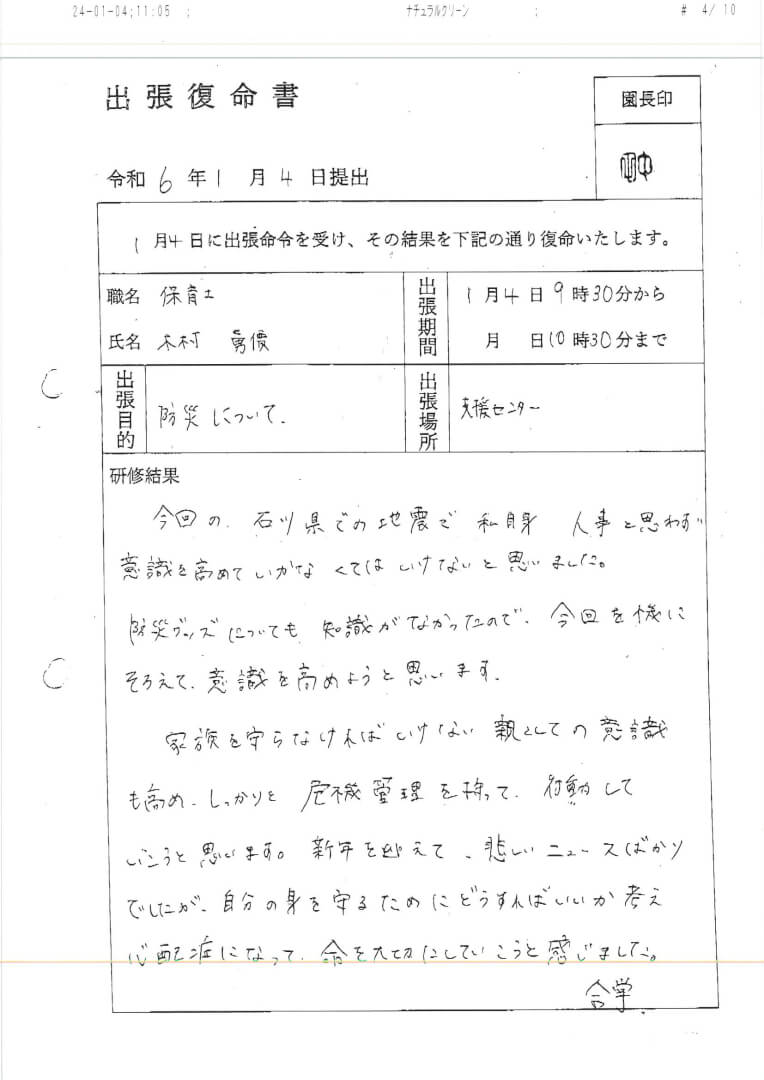 24-01-04;11:05 ; ナチュラルクリーン ; # 4/ 10
出張復命書
園長印
令和 6 年 1 月 4 日提出
1 月4 日に出張命令を受け、その結果を下記の通り復命いたします。
職名 保育士
氏名 木村 勇優
出張期間
1 月 4 日 9 時30分から
月 日10時30分まで
出張目的
防災について.
出張場所
支援センター
研修結果
今回の、石川県での地震で 私自身 人事と思わず
意識を高めていかなくてはいけないと思いました。
防災グッズについても 知識がなかったので、今回を機に
そろえて、意識を高めようと思います.
家族を守らなければいけない 親としての意識
も高め、しっかりと 危機管理を持って、行動して
いこうと思います。新年を迎えて、悲しいニュースばかり
でしたが、自分の身を守るためにどうすればいいか考え
心配症になって、命を大切にしていこうと感じました。